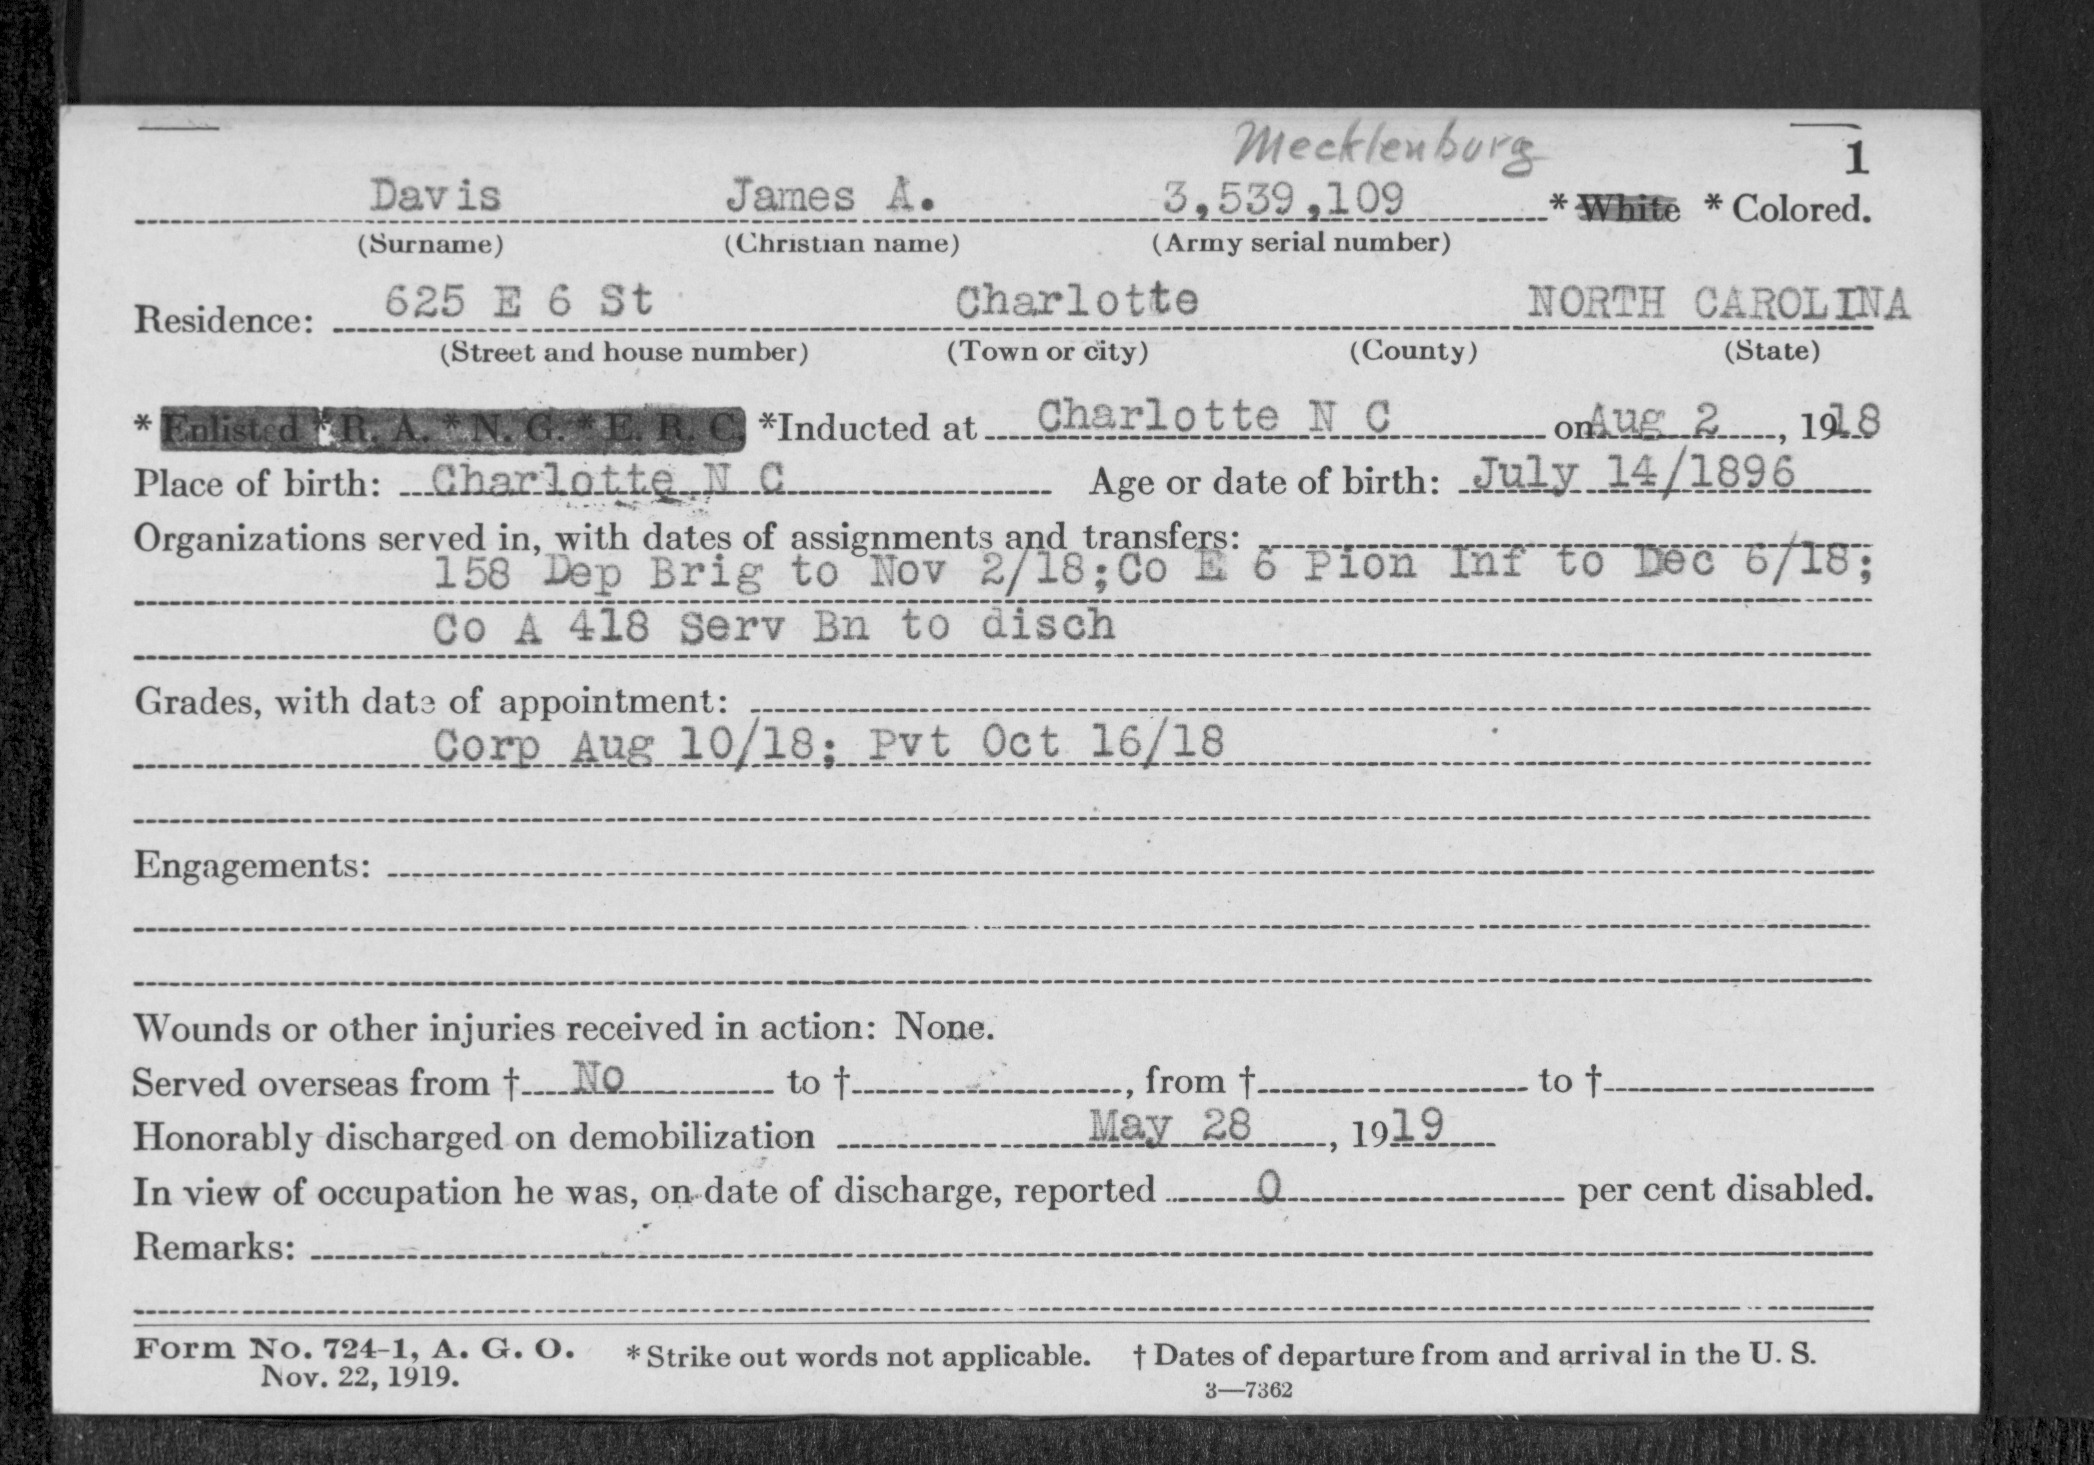 Mecklenburg
1
Davis James A. 3,539,109 * White * Colored.
(Surname) (Christian name) (Army serial number)
Residence: 625 E 6 St Charlotte NORTH CAROLINA
(Street and house number) (Town or city) (County) (State)
* Enlisted * R. A. * N. G. * E. R. C. *Inducted at Charlotte N C on Aug 2, 1918
Place of birth: Charlotte N C Age or date of birth: July 14/1896
Organizations served in, with dates of assignments and transfers:
158 Dep Brig to Nov 2/18;Co E 6 Pion Inf to Dec 6/18;
Co A 418 Serv Bn to disch
Grades, with date of appointment:
Corp Aug 10/18; Pvt Oct 16/18
Engagements:
Wounds or other injuries received in action: None.
Served overseas from † No to † , from † to †
Honorably discharged on demobilization May 28, 1919
In view of occupation he was, on date of discharge, reported 0 per cent disabled.
Remarks:
Form No. 724-1, A. G. O. * Strike out words not applicable. † Dates of departure from and arrival in the U. S.
Nov. 22, 1919.
3—7362